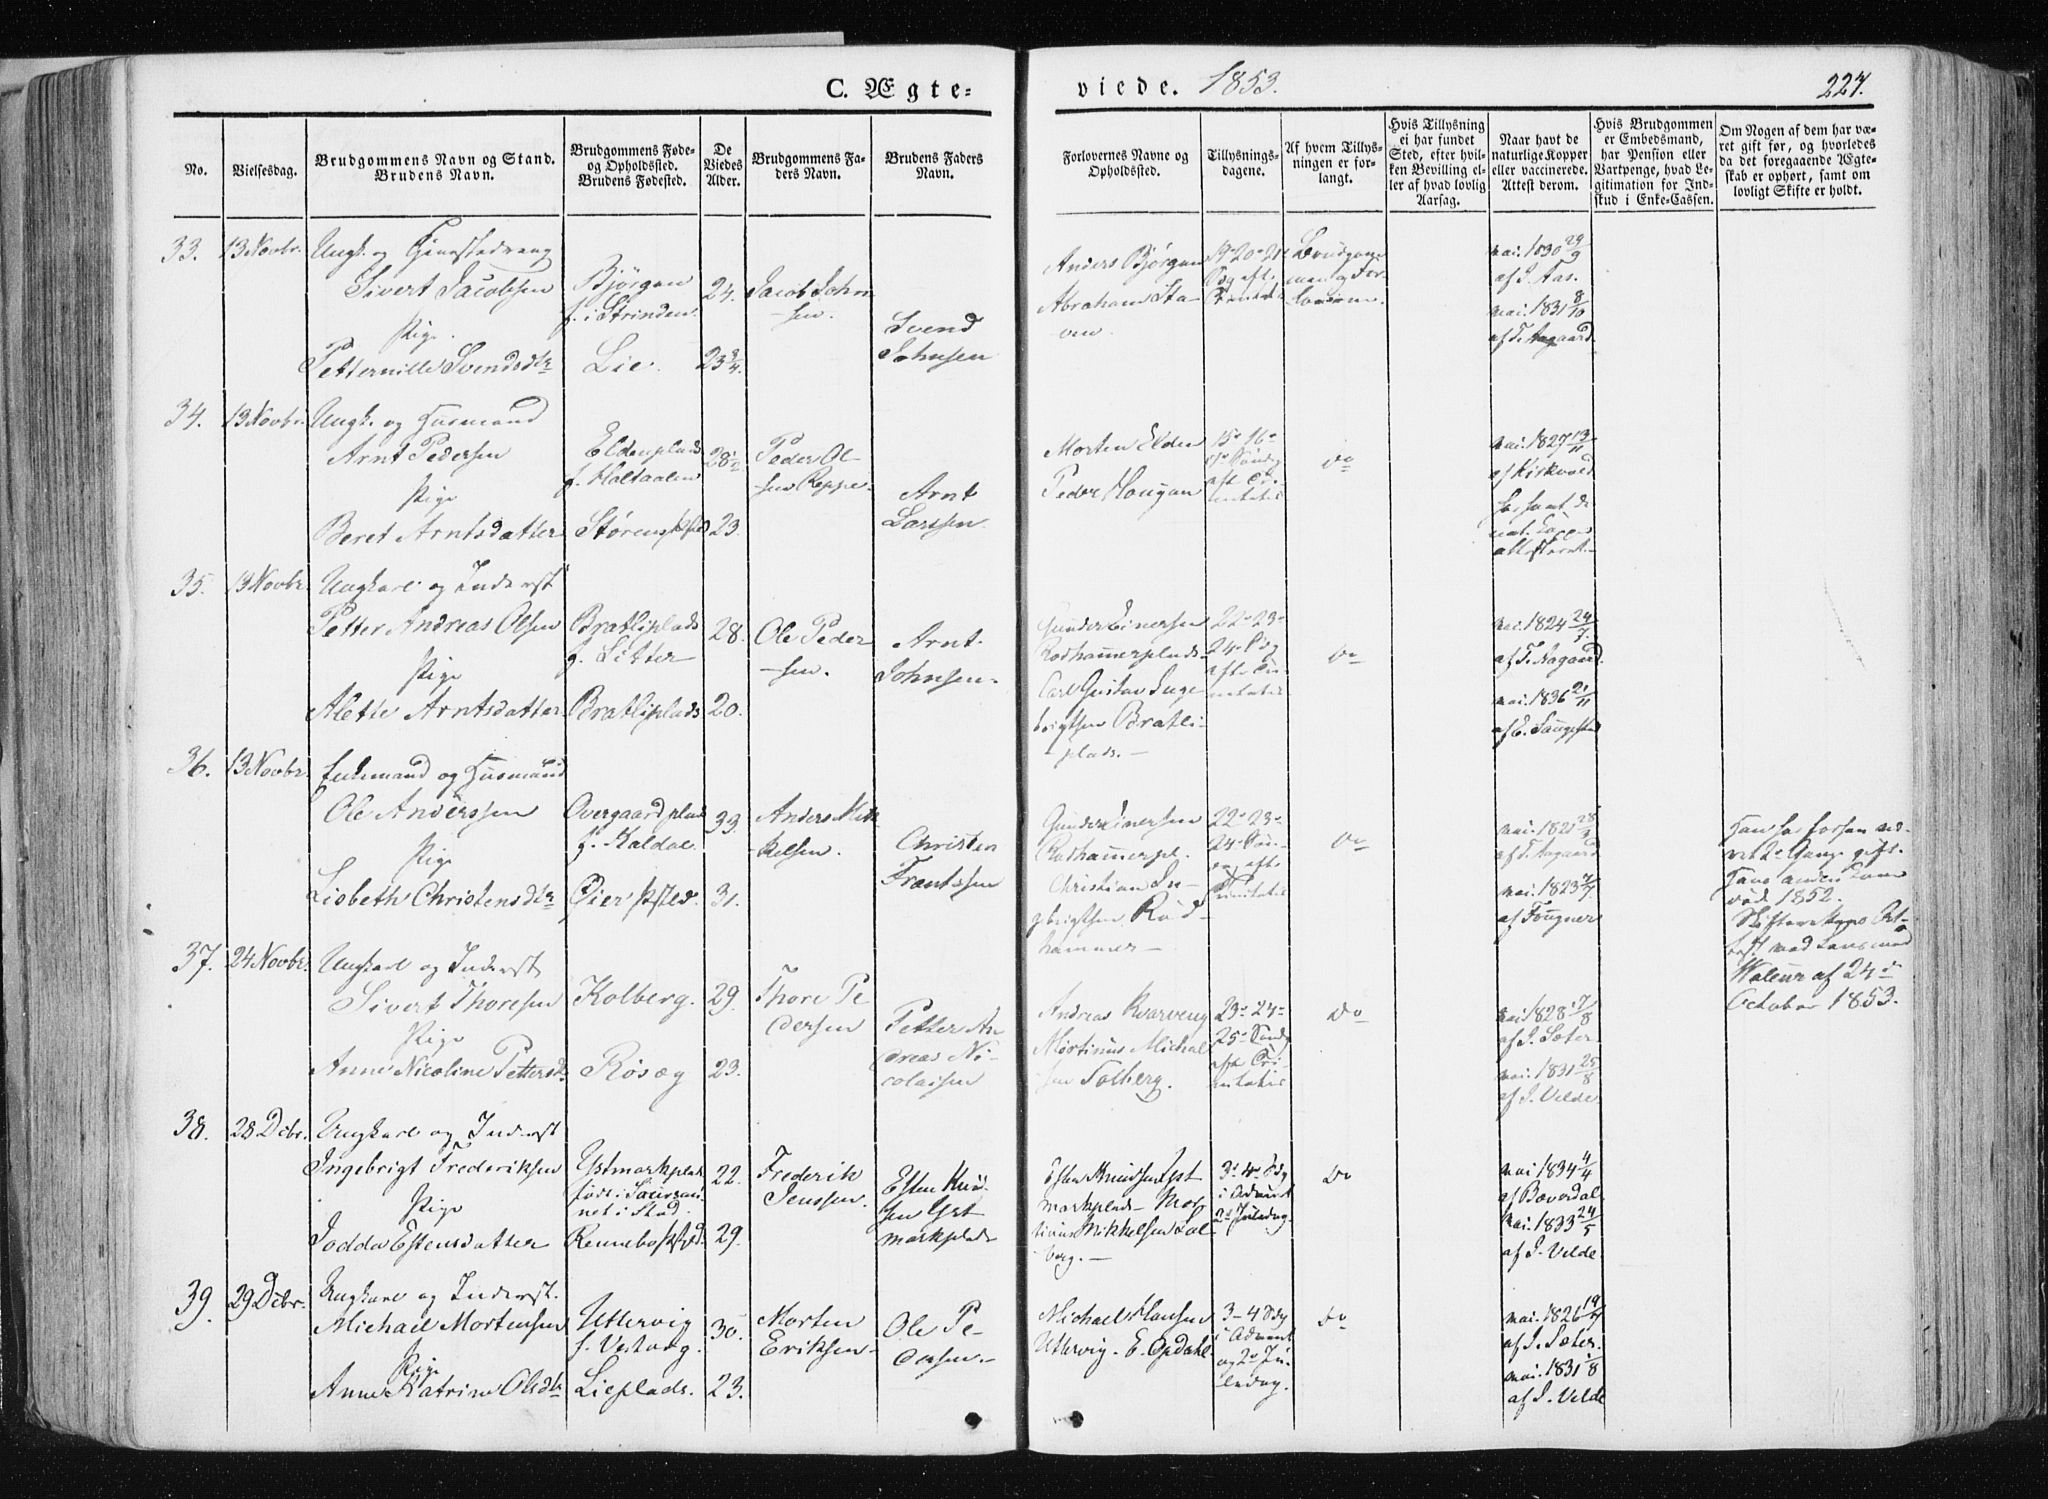 C. Ægte-
viede. 1853.
227.
No.
Vielsesdag.
Brudgommens Navn og Stand.
Brudens Navn.
Brudgommens Føde-
og Opholdssted.
Brudens Fødested.
De
Viedes
Alder.
Brudgommens Fa-
ders Navn.
Brudens Faders
Navn.
Forlovernes Navne og
Opholdssted.
Tillysnings-
dagene.
Af hvem Tillys-
ningen er for-
langt.
Hvis Tillysning
ei har fundet
Sted, efter hvil-
ken Bevilling el-
ler af hvad lovlig
Aarsag.
Naar havt de
naturlige Kopper
eller vaccinerede.
Attest derom.
Hvis Brudgommen
er Embedsmand,
har Pension eller
Vartpenge, hvad Le-
gitimation for Ind-
skud i Enke-Cassen.
Om Nogen af dem har væ-
ret gift før, og hvorledes
da det foregaaende Ægte-
skab er ophørt, samt om
lovligt Skifte er holdt.
33. 13 Novbr.
Ungk. og
Sivert Jacobsen
Pige
Petternille Svendsdtr
Bjørgen
f. i Strinden
Lie.
24.
23 3/4.
Jacob John-
sen.
Svend
Johnsen
Anders Bjørgen
Abraham Sta-
ven
19- 20- 21-
Brudgom-
men og For-
loverne.
vai. 1830 29/9
af J. Aas.
vai. 1831 8/10
af T. Aagaard
34. 13 Novbr.
Ungk. og Husmand
Arnt Pedersen
Pige
Beret Arntsdatter
Eldenplads
f. Holtaalen
Størens Pstd
28 1/2
23.
Peder Ol-
sen Reppe.
Arnt
Larssen
Morten Elden
Peder Haugan
15- 16-
do
vai. 1827 13/11
af Kirkvold
35. 13 Novbr
Ungkarl og Inderst
Petter Andreas Olsen
Pige
Alette Arntsdatter
Bratliplads
f. Litter
Bratliplads
28.
20.
Ole Peder-
sen.
Arnt
Johnsen.
Gunder Einersen
Rodhammerplads
Carl Gustav Inge-
brigtsen Bratli-
plads.
22- 23-
24- Sdg
do
vai. 1824 24/7.
af T. Aagaard.
vai. 1836 21/11
36. 13 Novbr.
Enkemand og Husmand
Ole Anderssen
Pige
Lisbeth Christensdtr
Overgaardplads
f. Kaldal.
Øier Pstld.
33.
31.
Anders Mik-
kelsen.
Christen
Frantssen
Gunder Einersen
Rodhammerpl.
Christian In-
gbrigtsen Rød-
hammer
22- 23-
24- Søn-
dag eft.
Trinitatis
do
vai. 1821 28/3
af T. Aagaard
vai. 1823 7/7.
af Fougner
Han har forhen væ-
ret 2 Gang gift.
Hans anden Kone
død 1852.
October 1853.
37. 24 Novbr.
Ungkarl og Inderst
Sivert Thoresen
Pige
Anne Nicoline Pettersd.
Kolberg.
Røsæg
29.
23.
Thore Pe-
dersen
Petter An-
dreas Ni-
colaisen
Andreas Kvarveng
Mortinus Michal-
sen Solberg.
23- 24-
25- Sønd
eft. Tri-
nitatis
do
vai. 1828 17/8
af J. Sæter
vai. 1831 25/8
af J. Velde
38. 28 Dcbr.
Ungkarl og Inderst
Ingebrigt Frederiksen
Pige
Jodda Estensdatter
Ystmarkplads
født i
Rennebo Pstgd.
22.
29.
Frederik
Jenssen.
Esten Knud-
sen Yst-
markplads
Esten Knudsen Yst-
markplads. Mor-
tinus Mikkelsen Sol-
berg.
3- 4- Sdg
i Advent
2d Juledag.
do
vai. 1834 4/4
af Bæverdal
vai. 1833 24/5
af J. Velde
39. 29 Dcbr.
Ungkarl og Inderst.
Michail Mortensen
Pige
Anne Katrine Olsdtr
Uttervig
f. Vestvæg.
Lieplads.
30.
23.
Morten
Eriksen
Ole Pe-
dersen.
Michael Hansen
Uttervig. E. Opdahl
3- 4 Sdg
i Advent
og 2d Ju-
ledag.
do
vai. 1826 19/9
af J. Sæter.
vai. 1831 1/8
af J. Velde